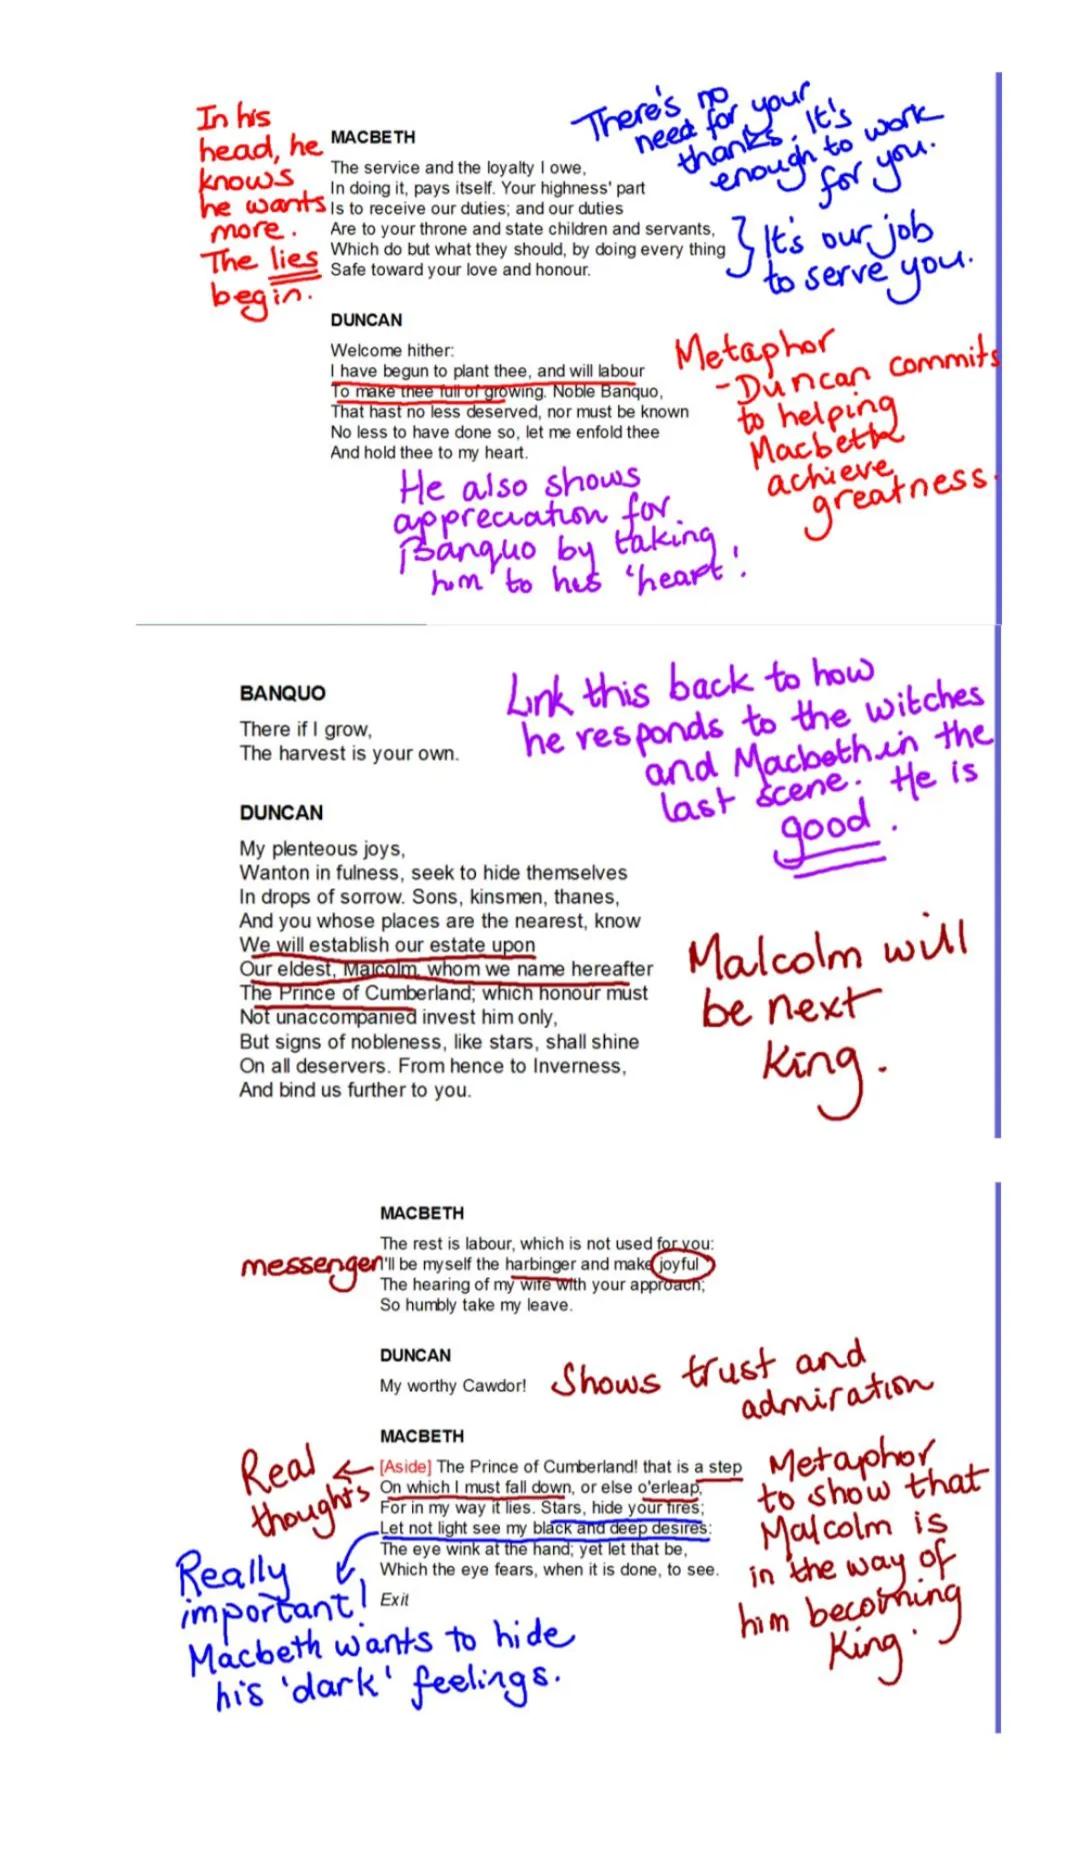 In his
head, he
knows
he wants
more.
The lies
begin.
MACBETH
The service and the loyalty I owe,
In doing it, pays itself. Your highness' part
Is to receive our duties; and our duties
Are to your throne and state children and servants,
Which do but what they should, by doing every thing
Safe toward your love and honour.
There's no
need for your
thanks. It's
enough to work
for you.
It's our job
to serve you.
DUNCAN
Welcome hither:
I have begun to plant thee, and will labour
To make thee full of growing. Noble Banquo,
That hast no less deserved, nor must be known
No less to have done so, let me enfold thee
And hold thee to my heart.
Metaphor
- Duncan commits
to helping
Macbeth
achieve
greatness.
He also shows
appreciation for
Banquo by taking
him to his 'heart'.
BANQUO
There if I grow,
The harvest is your own.
Link this back to how
he responds to the witches
and Macbeth in the
last scene. He is
good.
DUNCAN
My plenteous joys,
Wanton in fulness, seek to hide themselves
In drops of sorrow. Sons, kinsmen, thanes,
And you whose places are the nearest, know
We will establish our estate upon
Our eldest, Malcolm, whom we name hereafter
The Prince of Cumberland; which honour must
Not unaccompanied invest him only,
But signs of nobleness, like stars, shall shine
On all deservers. From hence to Inverness,
And bind us further to you.
Malcolm will
be next
King.
MACBETH
The rest is labour, which is not used for you:
I'll be myself the harbinger and make joyful
The hearing of my wife with your approach;
So humbly take my leave.
messenger
DUNCAN
My worthy Cawdor!
Shows trust and
admiration
MACBETH
[Aside] The Prince of Cumberland! that is a step
On which I must fall down, or else o'erleap,
For in my way it lies. Stars, hide your fires;
Let not light see my black and deep desires:
The eye wink at the hand; yet let that be,
Which the eye fears, when it is done, to see.
Exit
Real
thoughts
Metaphor
to show that
Malcolm is
in the way of
him becoming
King.
Really
important!
Macbeth wants to hide
his 'dark' feelings.